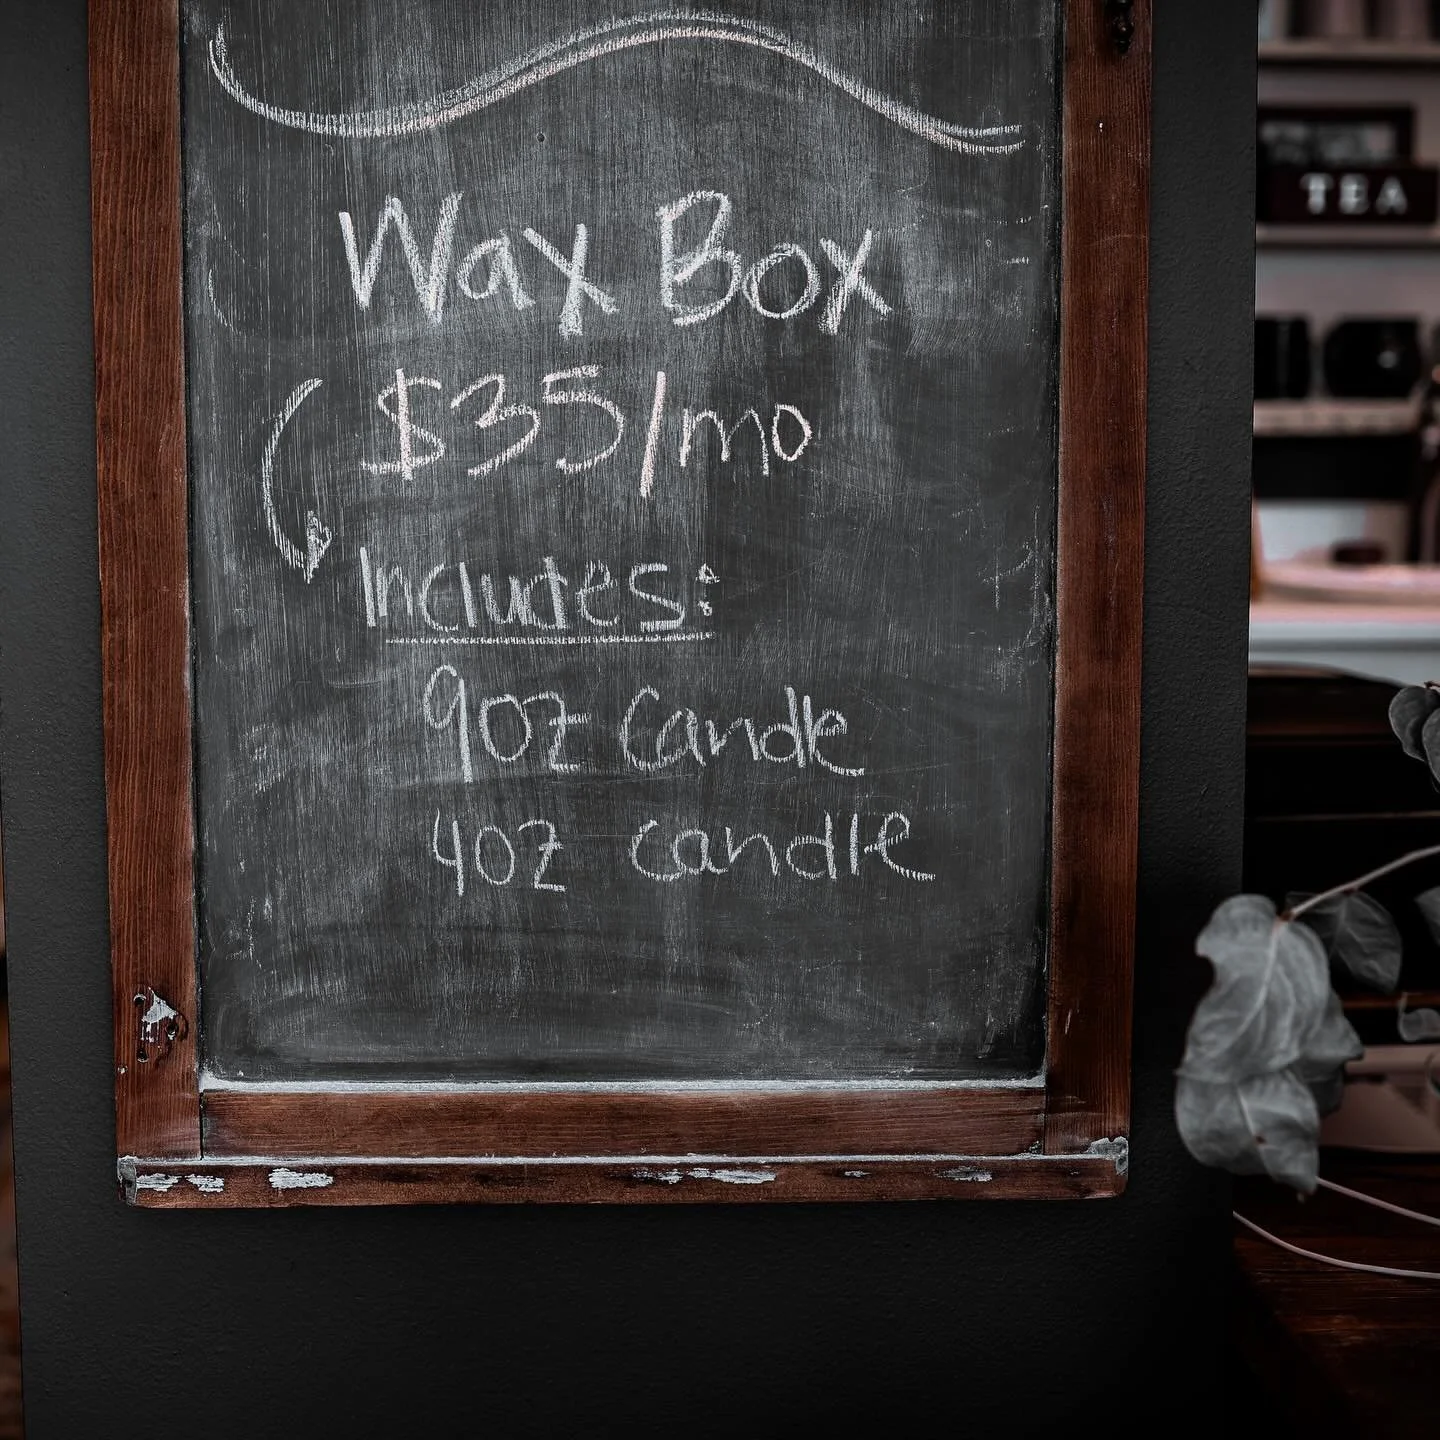 Wax Box
$35/mo
Includes:
9oz Candle
4oz candle
TEA